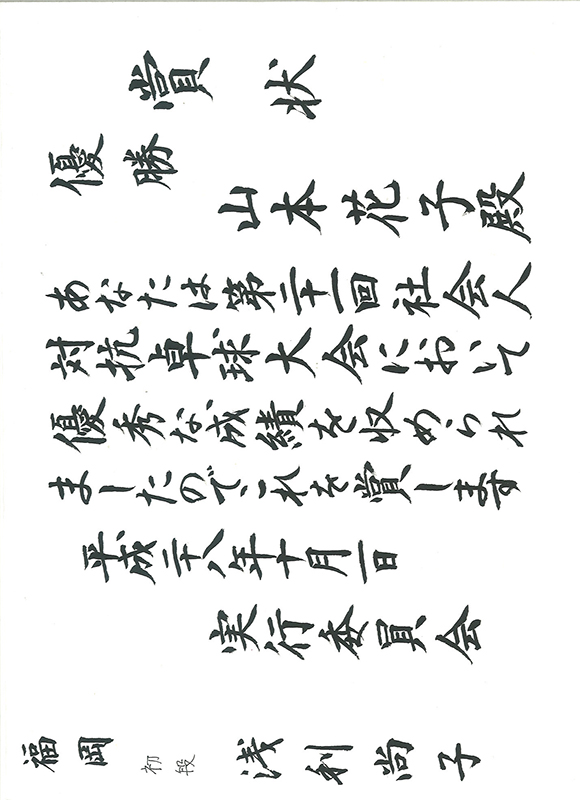 賞状
優勝
山本花子殿
あなたは第二十一回社会人
対抗卓球大会において
優秀な成績を収められ
ましたのでこれを賞します
平成二十八年十月一日
実行委員会
福岡 初段 浅利尚子